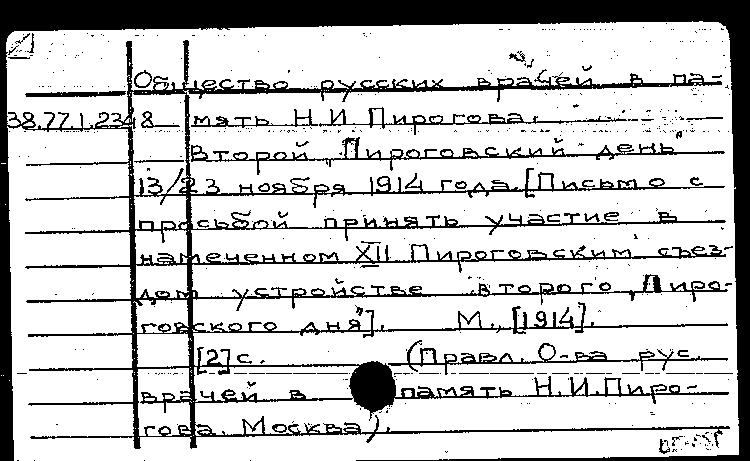 Общество русских врачей в па-
38.77.1.2348 мять Н.И Пирогова.
Второй „Пироговский день"
13/23 ноября 1914 года. [Письмо с
просьбой принять участие в
намеченном XII Пироговским съез-
дом устройстве второго „Пиро-
говского дня"]. М., [1914].
[2] с. (Правл. О-ва рус.
врачей в память Н.И.Пиро-
гова. Москва).